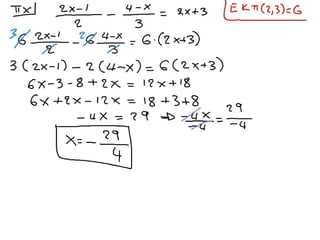 πχ) (2x-1)/2 - (4-x)/3 = 2x+3 Ε Κ Π (2,3)=6
3 6 (2x-1)/2 - 2 6 (4-x)/3 = 6·(2x+3)
3(2x-1) - 2(4-x) = 6(2x+3)
6x-3-8+2x = 12x+18
6x+2x-12x = 18+3+8
-4x = 29 ⇒ -4x/-4 = 29/-4
x = - 29/4